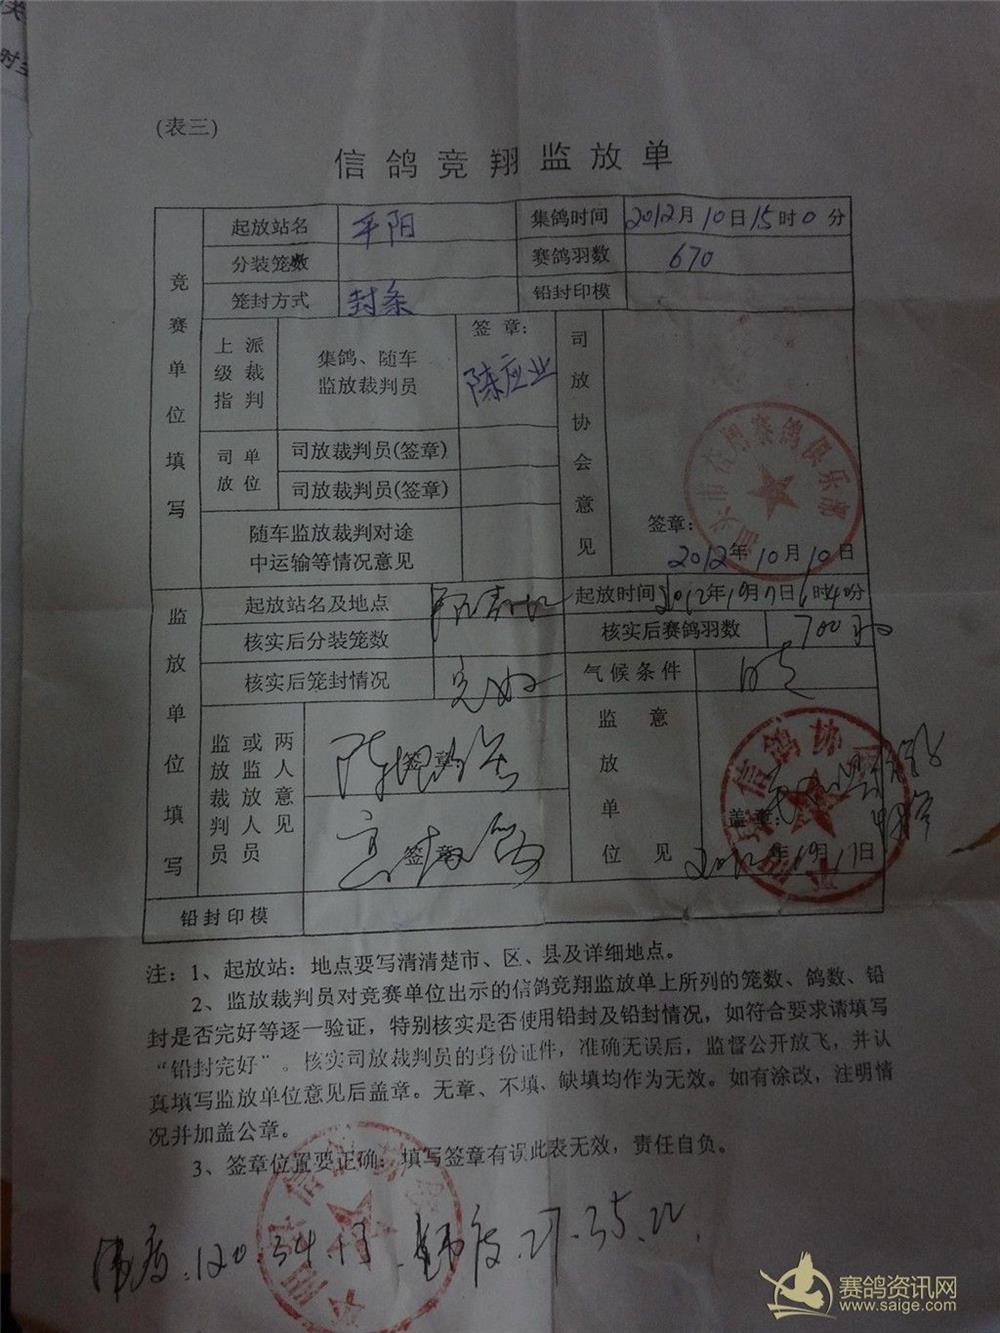 (表三)
信鸽竞翔监放单
竞赛单位填写
起放站名 平阳 集鸽时间 2012月10日15时0分
分装笼数 赛鸽羽数 670
笼封方式 封条 铅封印模
上级指派裁判 集鸽、随车监放裁判员 签章: 陈应业
司放单位 司放裁判员(签章)
司放裁判员(签章)
随车监放裁判对途中运输等情况意见
司放协会意见 签章:
2012年10月10日
监放单位填写
起放站名及地点 起放时间 2012年10月11日6时40分
核实后分装笼数 核实后赛鸽羽数 700
核实后笼封情况 完好 气候条件 晴
监放裁判员或监放人员两人意见 签章
签章
监放单位意见 盖章:
2012年10月11日
铅封印模
注: 1、起放站: 地点要写清清楚市、区、县及详细地点。
2、监放裁判员对竞赛单位出示的信鸽竞翔监放单上所列的笼数、鸽数、铅
封是否完好等逐一验证，特别核实是否使用铅封及铅封情况，如符合要求请填写
“铅封完好”。核实司放裁判员的身份证件，准确无误后，监督公开放飞，并认
真填写监放单位意见后盖章。无章、不填、缺填均作为无效。如有涂改，注明情
况并加盖公章。
3、签章位置要正确；填写签章有误此表无效，责任自负。
120.34 纬度:27.35.22
赛鸽资讯网
www.saige.com